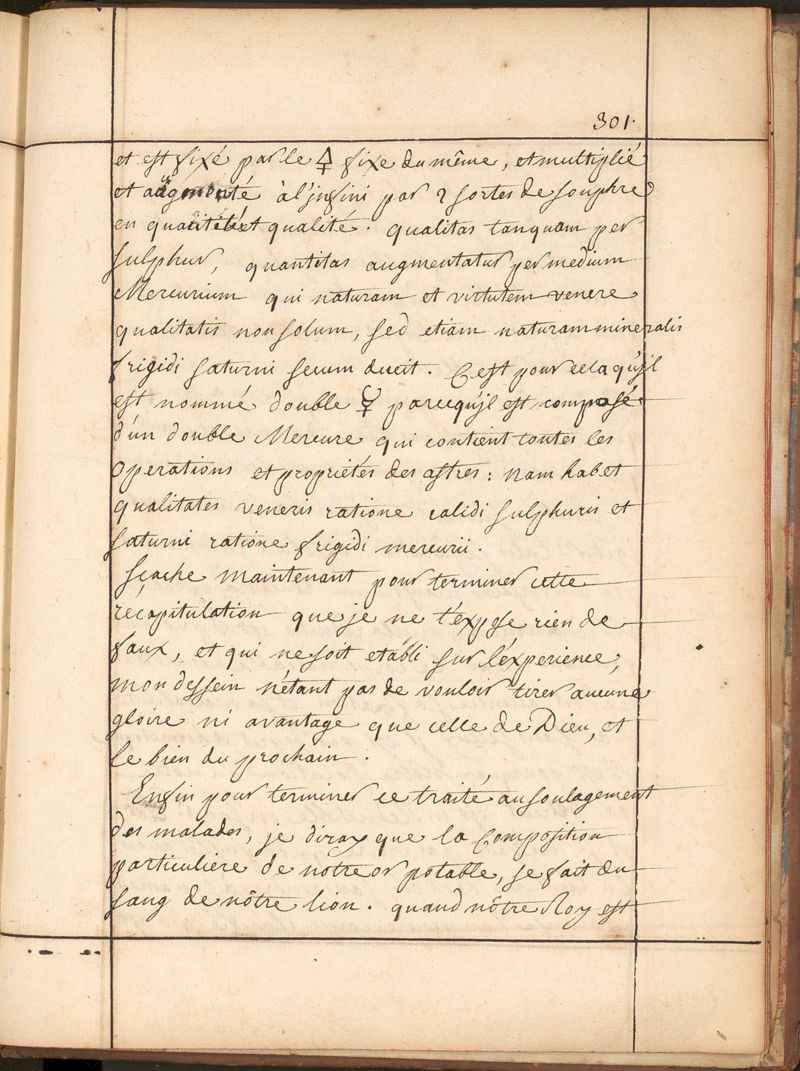 301.
et est fixé par le 🜍 fixe du même, et multiplié
et augmenté à l'jnfini par 2 sortes de souphre
en quantité et qualité. qualitas tanquam per
sulphur, quantitas augmentatur per medium
Mercurium qui naturam et virtutem venere
qualitatis non solum, sed etiam naturam mineralis
frigidi saturni secum ducit. C'est pour cela qu'jl
est nommé double ☿ parcequ'jl est composé
d'un double Mercure qui contient toutes les
operations et proprietés des astres: nam habet
qualitates veneris ratione calidi sulphuris et
saturni ratione frigidi mercurii.
Sçache maintenant pour terminer cette
récapitulation que je ne t'expose rien de
faux, et qui ne soit etabli sur l'éxperience,
mon dessein n'étant pas de vouloir tirer aucune
gloire ni avantage que celle de Dieu, et
le bien du prochain.
Enfin pour terminer ce traité au soulagement
des malades, je diray que la Composition
particuliere de notre or potable, se fait du
sang de nôtre lion. quand nôtre Roy est